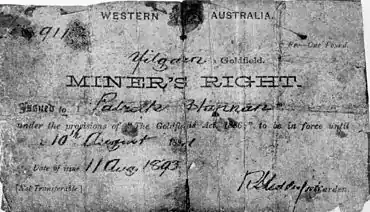 WESTERN AUSTRALIA.
911
Fee—One Pound.
Yilgarn Goldfield.
MINER'S RIGHT.
Issued to Patrick Hannan
under the provisions of "The Goldfields Act, 1886," to be in force until
10th August
Date of issue 11 Aug 1893
[Not Transferable] Warden.